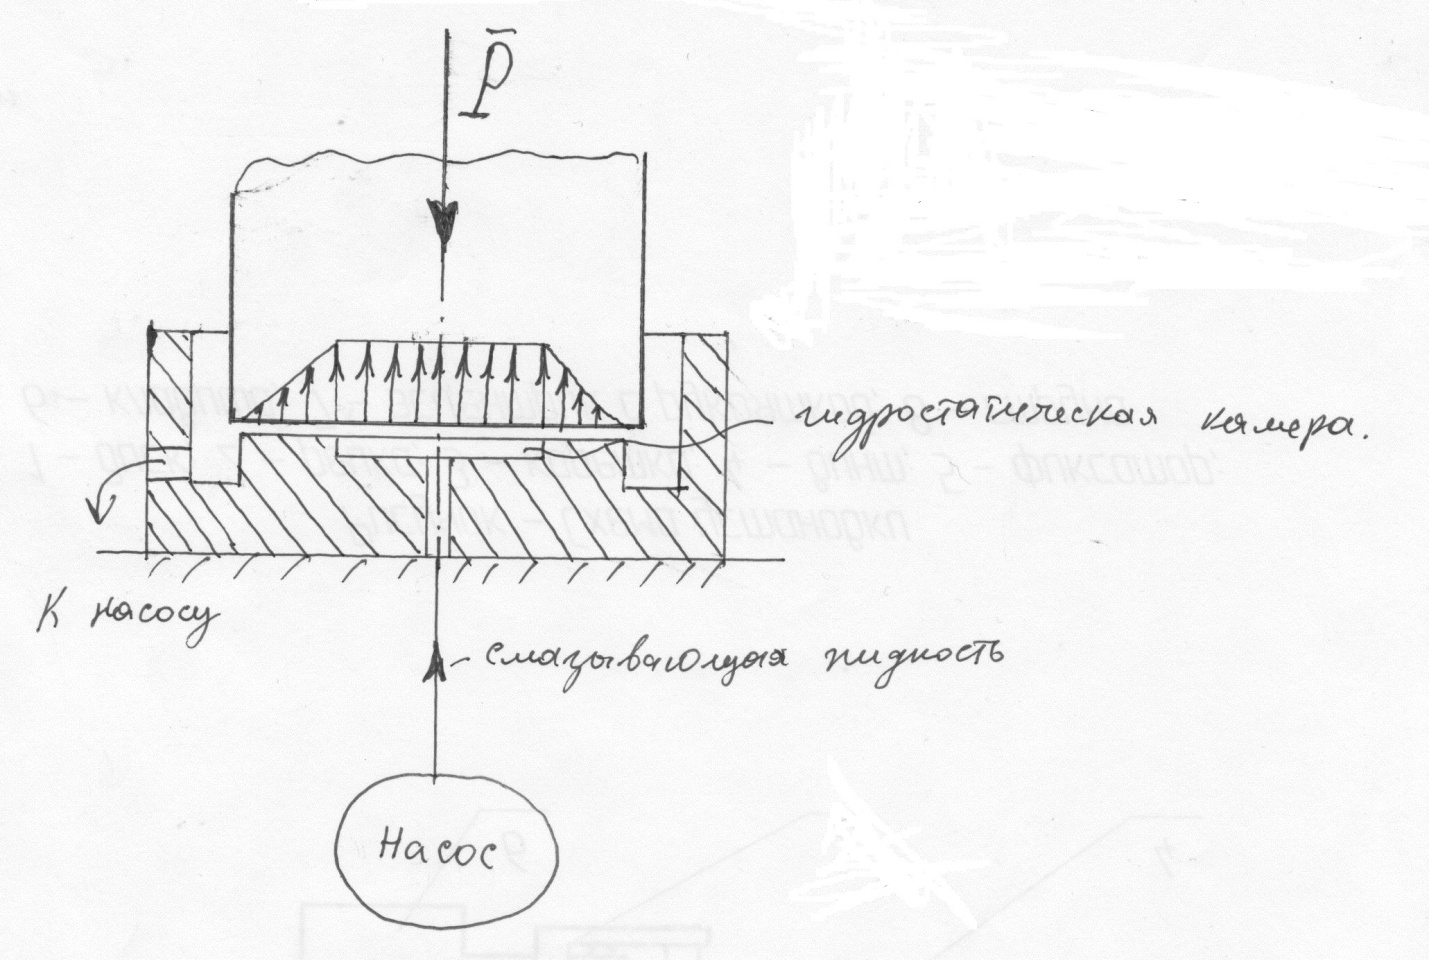 P̄
гидростатическая камера.
К насосу
смазывающая жидкость
Насос